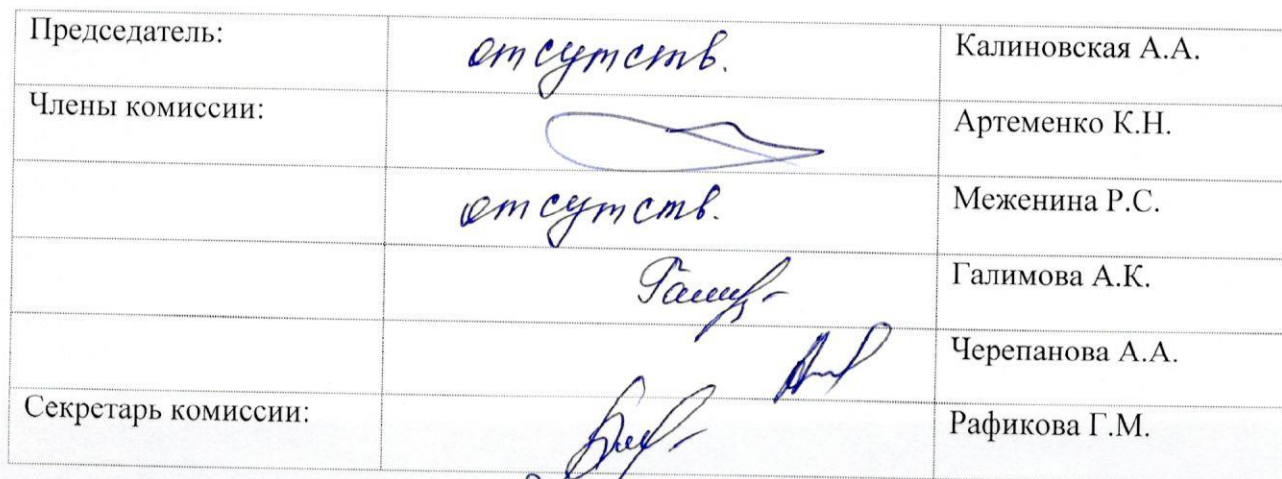 Председатель: отсутств. Калиновская А.А.
Члены комиссии: Артеменко К.Н.
отсутств. Меженина Р.С.
Галимова А.К.
Черепанова А.А.
Секретарь комиссии: Рафикова Г.М.